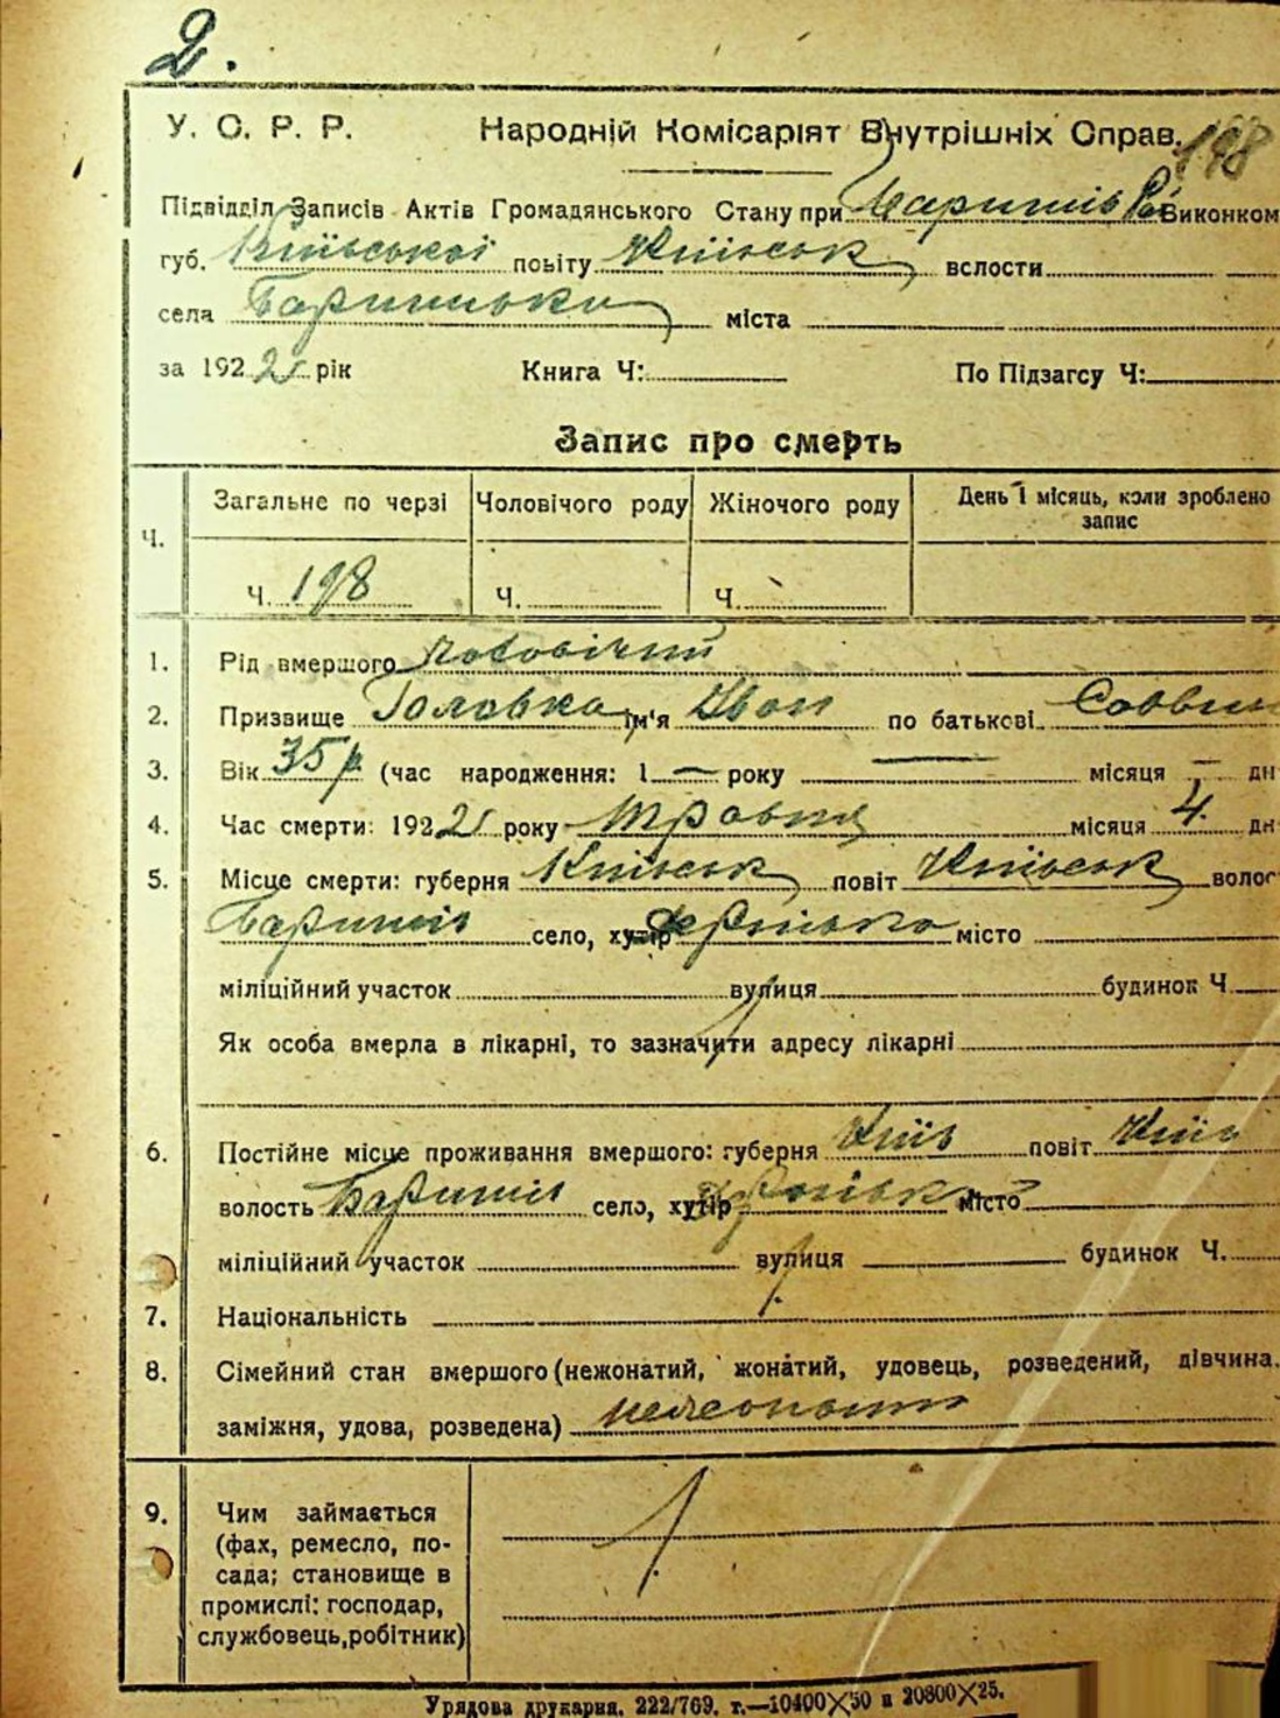 2.
У. С. Р. Р. Народній Комісаріят Внутрішніх Справ. 198
Підвідділ Записів Актів Громадянського Стану при Баришів Ра Виконком
губ. Київської повіту Київськ волости
села Баришівки міста
за 1922 рік Книга Ч: По Підзагсу Ч:
Запис про смерть
Ч. Загальне по черзі Чоловічого роду Жіночого роду День і місяць, коли зроблено
запис
Ч. 198 Ч. Ч.
1. Рід вмершого чоловічий
2. Призвище Головко ім'я Иван по батькові
3. Вік 35 р. (час народження: 1 — року — місяця — дн
4. Час смерти: 1922 року травня місяця 4. дн
5. Місце смерти: губерня Київськ повіт Київськ волос
Баришів село, хутір місто
міліційний участок вулиця будинок Ч.
Як особа вмерла в лікарні, то зазначити адресу лікарні
6. Постійне місце проживання вмершого: губерня Київ повіт Київ
волость Баришів село, хутір місто
міліційний участок вулиця будинок Ч.
7. Національність
8. Сімейний стан вмершого (нежонатий, жонатий, удовець, розведений, дівчина.
заміжня, удова, розведена) нежонатий
9. Чим займається
(фах, ремесло, по-
сада; становище в
промислі: господар,
службовець, робітник)
Урядова друкарня. 222/769. т.—10400×50 и 20800×25.